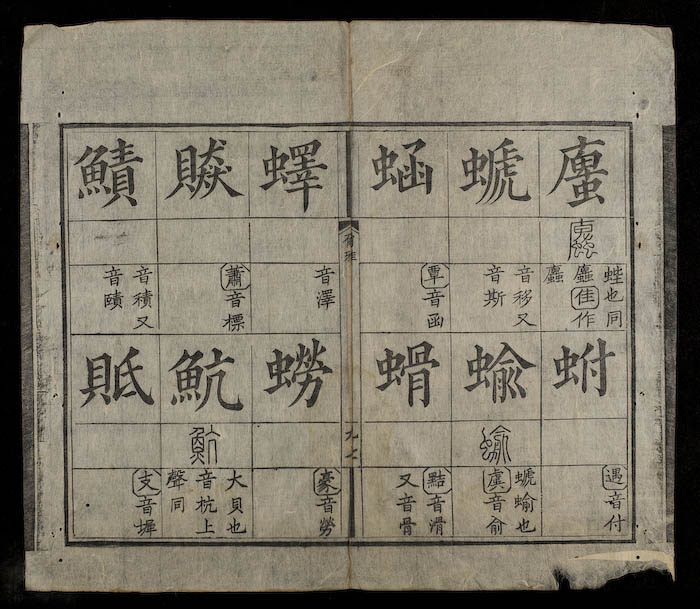 蠯
蜌也同
佳作
蚹
遇音付
螔
音移又
音斯
蝓
螔蝓也
虞音俞
蜬
覃音函
螖
黠音滑
又音骨
爾雅
九七
蠌
音澤
蟧
豪音勞
贆
蕭音標
魧
大貝也
音杭上
聲同
鰿
音積又
音賾
貾
支音墀